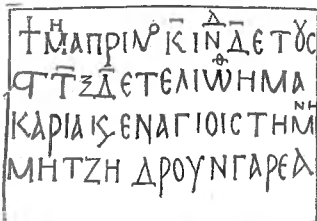 † Μᴴ ΑΠΡΙΛᵒ Κ̅ ΙΝᐃ Δ̅ ΕΤȢC
ϚΤ̅ΞΔ̅ ΕΤΕΛΙѠᶿΗ ΜΑ
ΚΑΡΙΑ Κϛ ΕΝ ΑΓΙΟΙC ΤΗΜᴺᴴ
ΜΗΤΖΗ ΔΡΟΥΝΓΑΡΕΑ